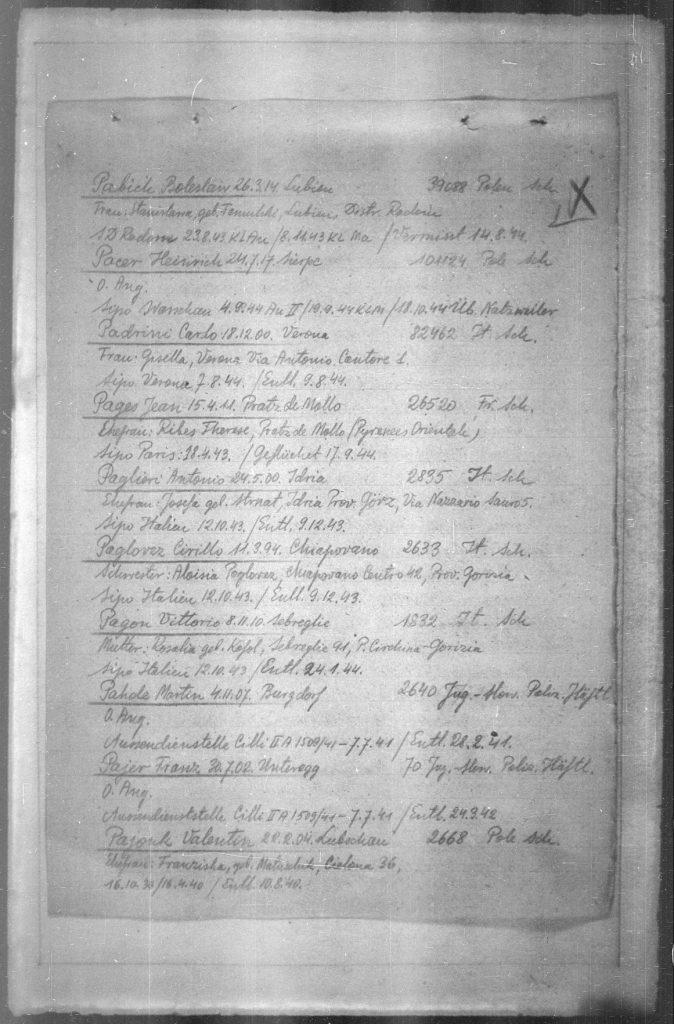 Pabich Boleslaw 26.3.14. Lubien 39088 Polen Sch.
Frau: Stanislawa, geb. Lubien, Distr. Radom X
SD Radom 23.8.43 KL Au / 8.11.43 KL Ma / Vermisst 14.8.44.
Pacer Heinrich 24.7.17. Sierpc 101124 Pole Sch
O. Ang.
Sipo Warschau 4.9.44 Au II / 19.9.44 KLM / 18.10.44 Üb. Natzweiler
Padrini Carlo 18.12.00. Verona 82462 It. Sch.
Frau: Gisella, Verona Via Antonio Cantore 1.
Sipo Verona 7.8.44. / Entl. 9.8.44.
Pages Jean 15.4.11. Pratz de Mollo 26520 Fr. Sch.
Ehefrau: Ribes Therese, Pratz de Mollo (Pyrenees Orientale)
Sipo Paris: 18.4.43. / Geflüchtet 17.9.44.
Paglieri Antonio 24.5.00. Idria 2835 It. Sch
Ehefrau: Josefa geb. Strnat, Idria Prov. Görz, Via Nazario Sauro 5.
Sipo Italien 12.10.43. / Entl. 9.12.43.
Paglovez Cirillo 11.3.94. Chiapovano 2633 It. Sch.
Schwester: Aloisia Paglovez, Chiapovano Centro 42, Prov. Gorizia.
Sipo Italien 12.10.43. / Entl. 9.12.43.
Pagon Vittorio 8.11.10. Sebreglie 1832 It. Sch
Mutter: Rosalia geb. Kafol, Sebreglie 91, P. Circhina-Gorizia
Sipo Italien 12.10.43 / Entl. 24.1.44.
Pahole Martin 4.11.07. Burgdorf 2640 Jug.-Slow. Poliz. Häftl
O. Ang.
Aussendienstelle Cilli II A 1509/41 - 7.7.41 / Entl. 28.2.41.
Pajer Franz 30.7.02. Unteregg 70 Jug.-Slow. Poliz. Häftl.
O. Ang.
Aussendienststelle Cilli II A 1509/41 - 7.7.41 / Entl. 24.3.42
Valentin 22.2.04. Lubochau 2668 Pole Sch.
Ehefrau: Franziska, geb. 36,
16.4.40 / Entl. 10.8.40.